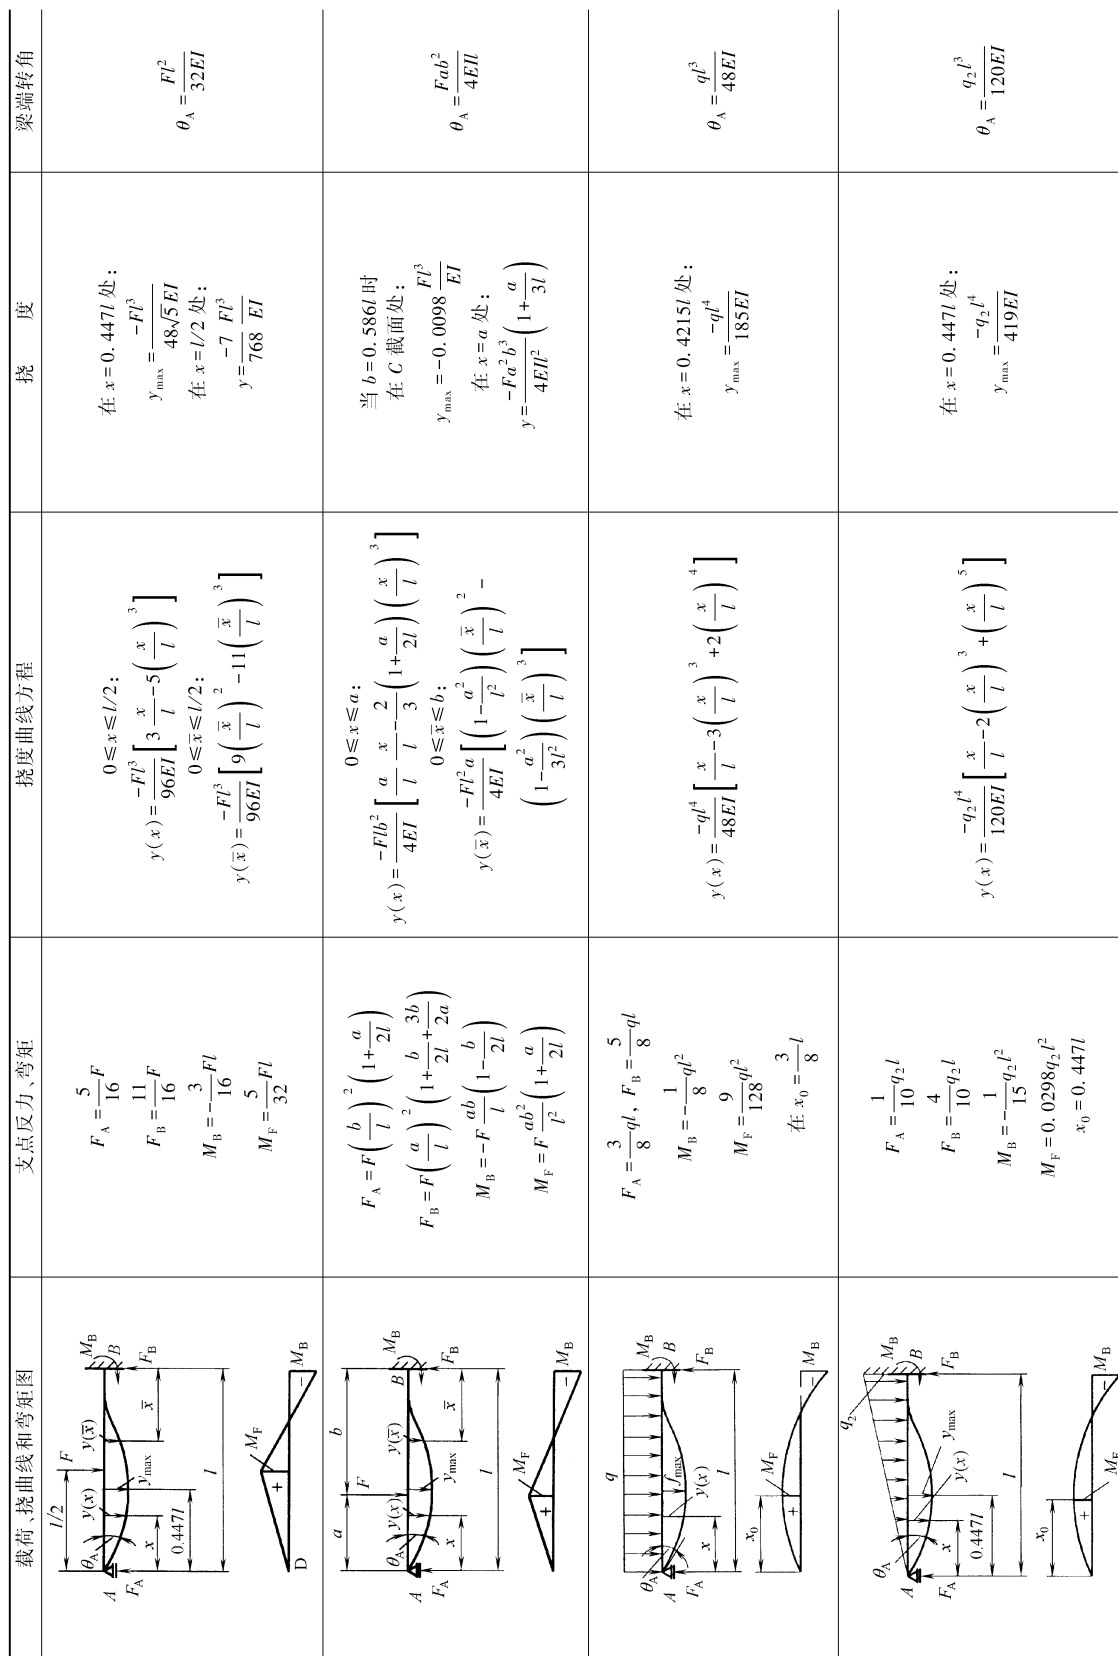 载荷、挠曲线和弯矩图 支点反力、弯矩 挠度曲线方程 挠 度 梁端转角
l/2
F
M_B
B
θ_A
y(x)
y(x̄)
A
F_A
x
y_max
x̄
F_B
0.447l
l
M_F
+
−
D
M_B
F_A = 5/16 F
F_B = 11/16 F
M_B = -3/16 Fl
M_F = 5/32 Fl
0≤x≤l/2:
y(x) = -Fl³/96EI [3 x/l - 5(x/l)³]
0≤x̄≤l/2:
y(x̄) = -Fl³/96EI [9(x̄/l)² - 11(x̄/l)³]
在 x=0.447l 处:
y_max = -Fl³/48√5EI
在 x=l/2 处:
y = -7/768 Fl³/EI
θ_A = Fl²/32EI
a
b
F
M_B
B
θ_A
y(x)
y(x̄)
A
F_A
x
y_max
x̄
F_B
l
M_F
+
−
M_B
F_A = F(b/l)²(1+a/2l)
F_B = F(a/l)²(1+b/2l+3b/2a)
M_B = -F ab/l (1-b/2l)
M_F = F ab²/l² (1+a/2l)
0≤x≤a:
y(x) = -Flb²/4EI [a/l x/l - 2/3 (1+a/2l)(x/l)³]
0≤x̄≤b:
y(x̄) = -Fl²a/4EI [(1-a²/l²)(x̄/l)² -
(1-a²/3l²)(x̄/l)³]
当 b=0.586l 时
在 C 截面处:
y_max = -0.0098 Fl³/EI
在 x=a 处:
y = -Fa²b³/4EIl² (1+a/3l)
θ_A = Fab²/4EIl
q
M_B
B
θ_A
A
F_A
x
y(x)
f_max
F_B
l
x₀
M_F
+
−
M_B
F_A = 3/8 ql, F_B = 5/8 ql
M_B = -1/8 ql²
M_F = 9/128 ql²
在 x₀ = 3/8 l
y(x) = -ql⁴/48EI [x/l - 3(x/l)³ + 2(x/l)⁴]
在 x=0.4215l 处:
y_max = -ql⁴/185EI
θ_A = ql³/48EI
q₂
M_B
B
θ_A
A
F_A
x
y_max
y(x)
F_B
0.447l
l
x₀
M_F
+
−
M_B
F_A = 1/10 q₂l
F_B = 4/10 q₂l
M_B = -1/15 q₂l²
M_F = 0.0298q₂l²
x₀ = 0.447l
y(x) = -q₂l⁴/120EI [x/l - 2(x/l)³ + (x/l)⁵]
在 x=0.447l 处:
y_max = -q₂l⁴/419EI
θ_A = q₂l³/120EI